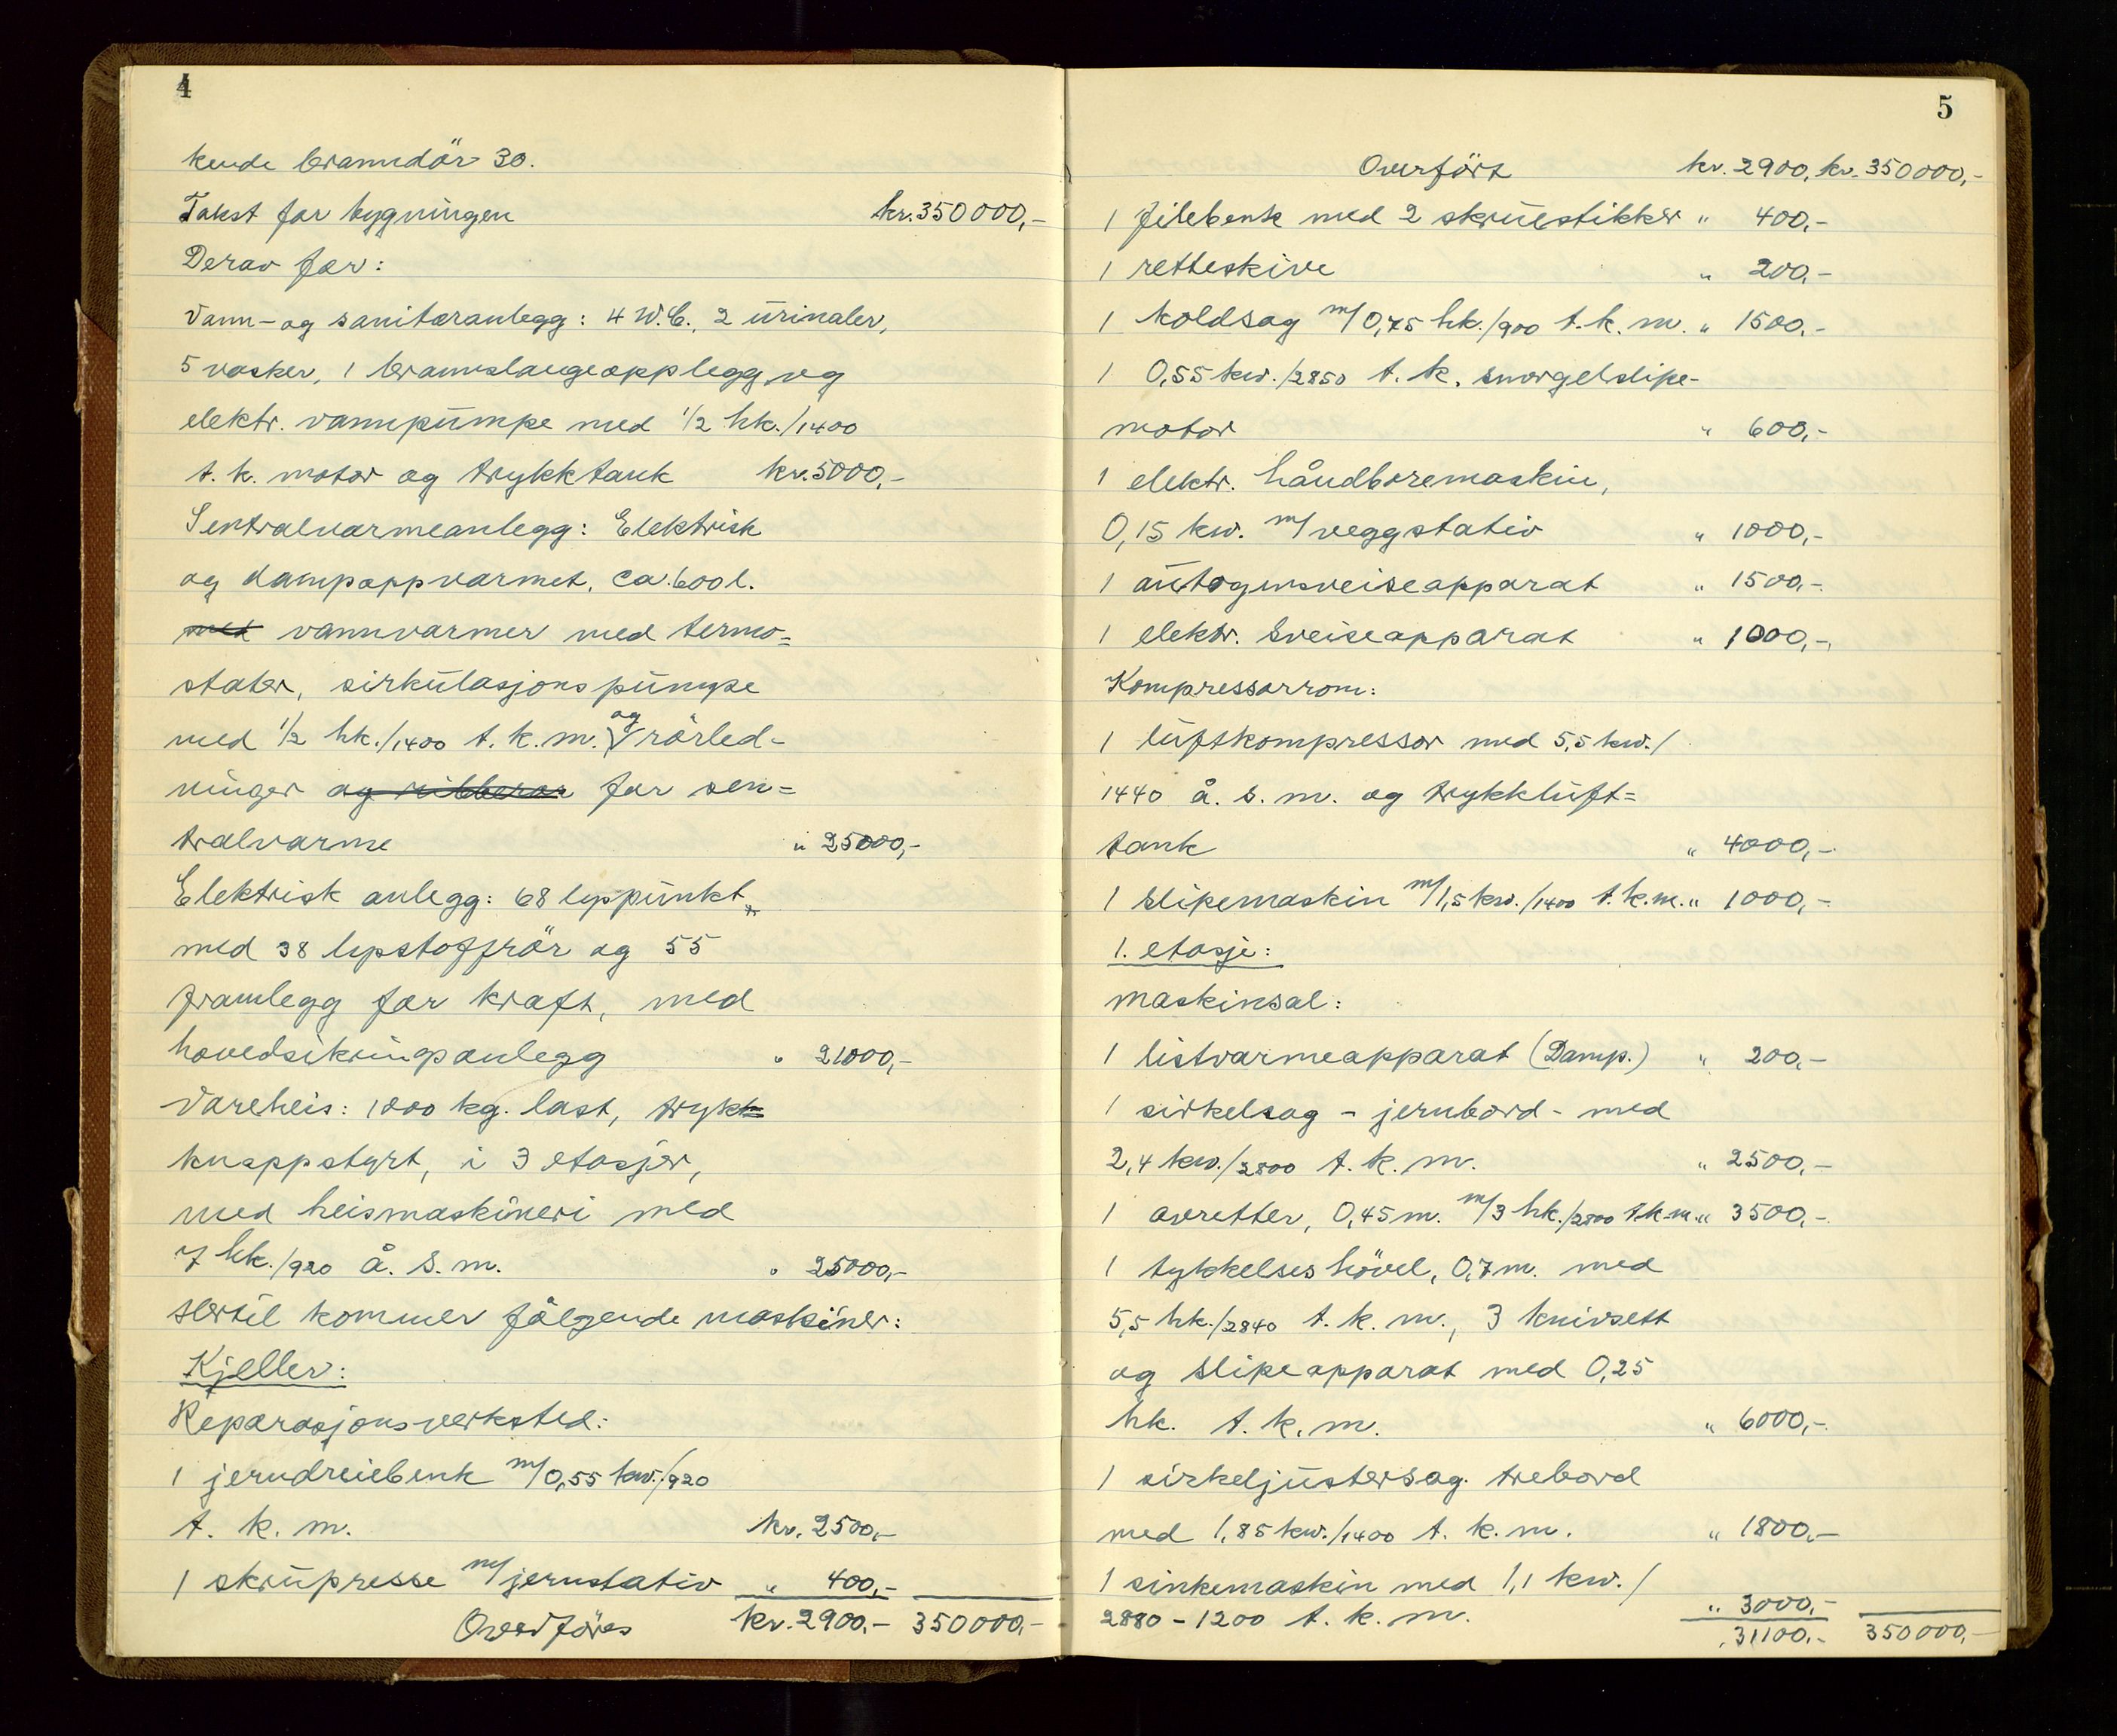 4
kende branndör 30.
Takst for bygningen kr. 350000,-
Derav for:
Vann- og sanitæranlegg: 4 W.C., 2 urinaler,
5 vasker, 1 brannslangeopplegg og
elektr. vannpumpe med 1/2 hk./1400
t. k. motor og trykktank kr. 5000,-
Sentralvarmeanlegg: Elektrisk
og dampoppvarmet, ca. 600 l.
med vannvarmer med termo=
stater, sirkulasjonspumpe
med 1/2 hk./1400 t. k. m. og rörled-
ninger og ribberør for sen=
tralvarme " 25000,-
Elektrisk anlegg: 68 lyspunkt
med 38 lysstoffrör og 55
framlegg for kraft, med
hovedsikringsanlegg " 21000,-
Vareheis: 1000 kg. last, trykk=
knappstyrt, i 3 etasjer,
med heismaskineri med
7 hk./920 å. s. m. " 25000,-
Hertil kommer fölgende maskiner:
Kjeller:
Reparasjonsverksted:
1 jerndreiebenk m/0,55 kw./920
t. k. m. kr. 2500,-
1 skrupresse m/jernstativ " 400,-
Overföres kr. 2900,- 350000,-
5
Overfört kr. 2900, kr. 350000,-
1 filebenk med 2 skruestikker " 400,-
1 retteskive " 200,-
1 koldsag m/0,75 hk./900 t. k. m. " 1500,-
1 0,55 kw./2850 t. k. smergelslipe-
motor " 600,-
1 elektr. håndboremaskin,
0,15 kw. m/veggstativ " 1000,-
1 autogensveiseapparat " 1500,-
1 elektr. sveiseapparat " 1000,-
Kompressorrom:
1 luftkompressor med 5,5 kw./
1440 å. s. m. og trykkluft=
tank " 4000,-
1 slipemaskin m/1,5 kw./1400 t. k. m. " 1000,-
1. etasje:
Maskinsal:
1 listvarmeapparat (Damp.) " 200,-
1 sirkelsag - jernbord - med
2,4 kw./2800 t. k. m. " 2500,-
1 avretter, 0,45 m. m/3 hk./2800 t. k. m. " 3500,-
1 tykkelseshövel, 0,7 m. med
5,5 hk./2840 t. k. m., 3 knivsett
og slipeapparat med 0,25
hk. t. k. m. " 6000,-
1 sirkeljustersag. trebord
med 1,85 kw./1400 t. k. m. " 1800,-
1 sinkemaskin med 1,1 kw./
2880 - 1200 t. k. m. " 3000,-
31100,- 350000,-